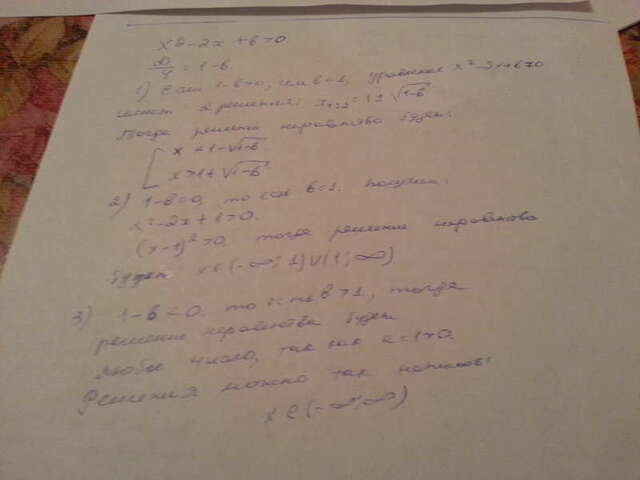 x² - 2x + b > 0
D/4 = 1 - b.
1) Если 1-b>0, или b<1, уравнение x²-2x+b=0
имеет 2 решения: x₁,₂ = 1 ± √(1-b)
Тогда решения неравенства будут:
[ x < 1 - √(1-b)
x > 1 + √(1-b)
2) 1-b=0, то есть b=1. Получим:
x² - 2x + 1 > 0.
(x-1)² > 0. тогда решение неравенства
будет x ∈ (-∞; 1) ∪ (1; ∞)
3) 1-b < 0. то есть b > 1, тогда
решение неравенства будет
любое число, так как a = 1 > 0.
Решения можно так написать:
x ∈ (-∞; ∞)